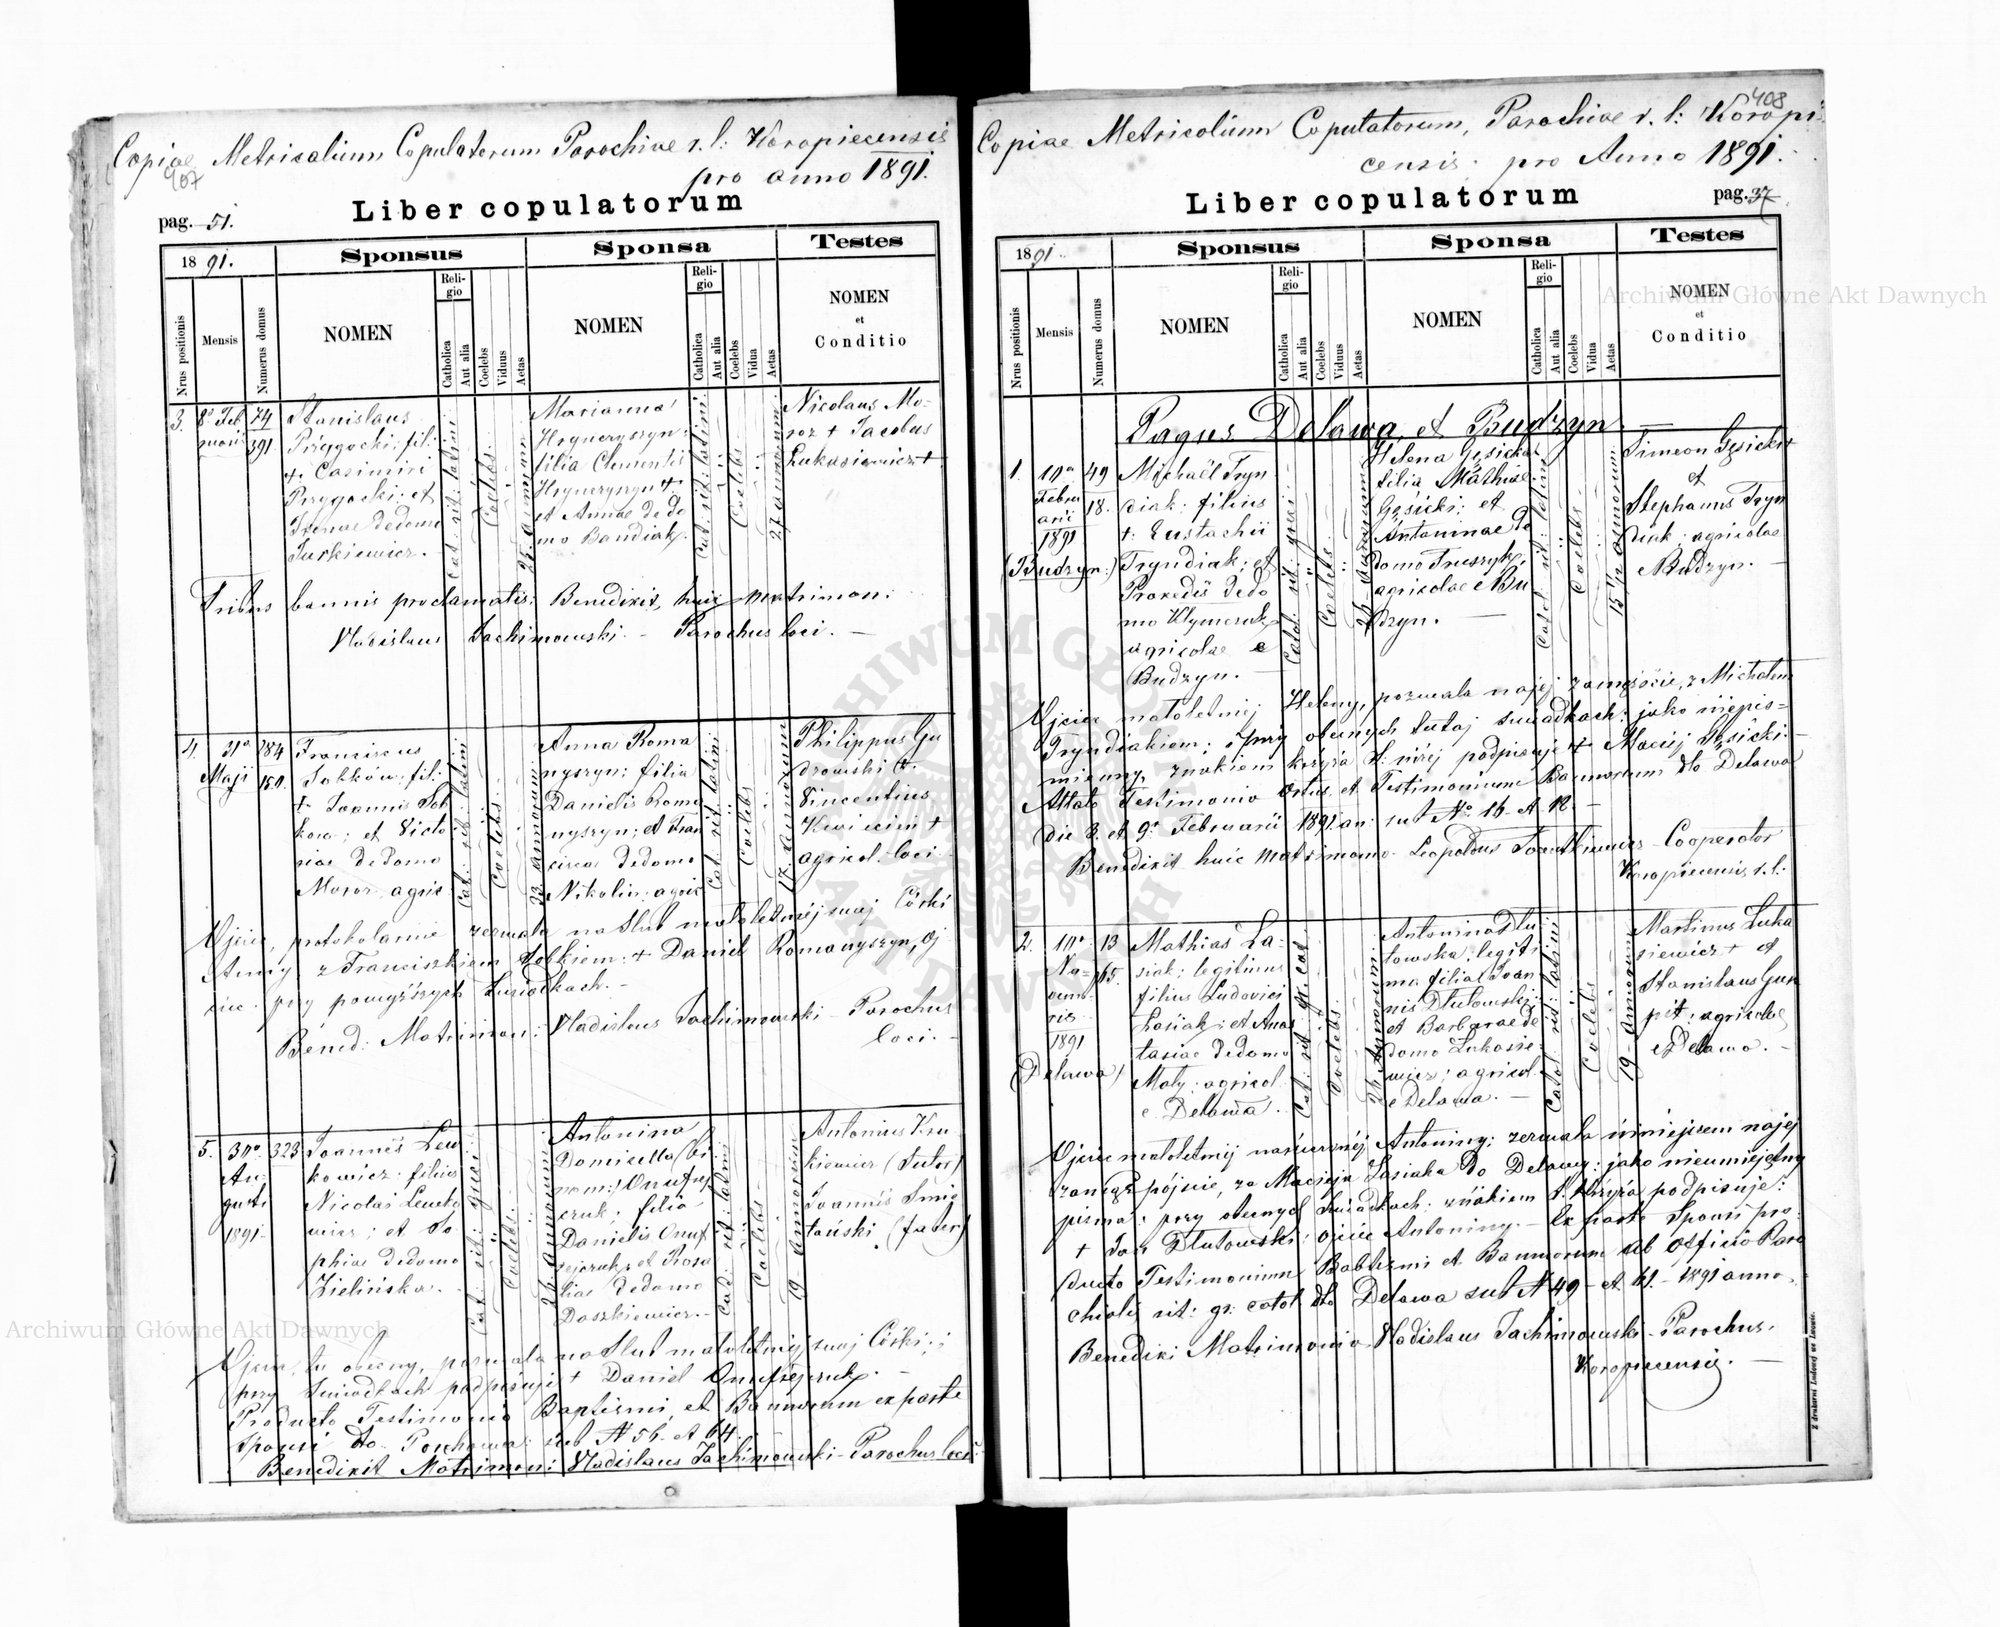 Copiae Metricalium Copulatorum Parochiae r. l: Koropiecensis
407
pro anno 1891.
Liber copulatorum
pag. 51.
18 91.
Sponsus
Sponsa
Testes
Nrus positionis
Mensis
Numerus domus
NOMEN
Religio
Catholica
Aut alia
Coelebs
Viduus
Aetas
NOMEN
Religio
Catholica
Aut alia
Coelebs
Vidua
Aetas
NOMEN
et
Conditio
3. 8a Feb
ruarii
74
391
Stanislaus
Przygocki: fil:
+ Casimiri
Przygocki: et
Irenae de domo
Turkiewicz. -
Cat: rit: latini
Coelebs
25 annorum
Marianna
Hryneryszyn
filia Clementis
Hryneryszyn +
et Annae de do
mo Bandiak.
Cat: rit: latini
Coelebs
27 annorum
Nicolaus Mo-
roz + Jacobus
Lukasiewicz +
Tribus bannis proclamatis: Benedixit, huic Matrimon:
Vladislaus Jachimowski - Parochus loci. -
4. 31a
Maji
184
150.
Franciscus
Sobków: fil:
+ Joannis Sob
kow; et Victo
riae de domo
Moroz agric
Cat: rit: latini
Coelebs
33 annorum
Anna Roma
nyszyn: filia
Danielis Roma
nyszyn; et Fran
cisca de domo
Nikolin: agric
Cat: rit: latini
Coelebs
17 annorum
Philippus Gu
drowski +.
Vincentius
Kwiecień +
agricol. loci.
Ojciec, protokolarnie zezwala na ślub małoletniej swej Córki
Anny, z Franciszkiem Sobkiem: + Daniel Romanyszyn, oj
ciec. przy powyższych świadkach. -
Bened: Matrimon: Vladislaus Jachimowski - Parochus
loci. -
5. 30a
Au-
gusti
1891
323
Joannes Lew
kowicz: filius
Nicolai Lewko
wicz; et So
phiae de domo
Zielińska. -
Cat: rit: graeci
Coelebs
26 annorum
Antonina
Domicella (bi
nom:) Onufrej
czuk; filia
Danielis Onuf
rejczuk, et Rosa
liae de domo
Daszkiewicz. -
Cat: rit: latini
Coelebs
19 annorum
Antonius Kru
kiewicz (Sutor)
Joannes Smig
tański (faber)
Ojciec tu obecny, pozwala na ślub małoletniej swej Córki;
przy świadkach podpisuje + Daniel Onufrejczuk. -
Producto Testimonio Baptismi, et Bannorum ex parte
Sponsi dto Porchowa: sub N 56. et 64.
Benedixit Matrimon: Vladislaus Jachimowski - Parochus loci. -
408
Copiae Metricalium Copulatorum, Parochiae r. l: Koropi
censis. pro Anno 1891.
Liber copulatorum
pag. 37
18 91.
Sponsus
Sponsa
Testes
Nrus positionis
Mensis
Numerus domus
NOMEN
Religio
Catholica
Aut alia
Coelebs
Viduus
Aetas
NOMEN
Religio
Catholica
Aut alia
Coelebs
Vidua
Aetas
NOMEN
et
Conditio
Pagus Delawa et Budzyn
1. 10a
Febru
arii
1891
(Budzyn:)
49
18.
Michaël Tryn
diak: filius
+ Eustachii
Tryndiak; et
Praxedis de do
mo Klymczuk
agricolae e
Budzyn. -
Catol: rit: graeci
Coelebs
26 annorum
Helena Gęsicka
filia Mathiae
Gęsicki; et
Antoninae de
domo Truszyk;
agricolae e Bu
dzyn. -
Catol: rit: latini
Coelebs
15 1/2 annorum
Simeon Gęsicki +
et
Stephanus Tryn
diak: agricolae
e Budzyn. -
Ojciec małoletniej Heleny, pozwala na jej zamęście, z Michałem
Tryndiakiem; i przy obecnych tutaj świadkach: jako niepis=
mienny, znakiem krzyża S. niżej podpisuje + Maciej Gęsicki. -
Allato Testimonio Ortus et Testimonium Bannorum dto Delawa
die 8. et 9a Februarii 1891 an: sub No 16. et 12. -
Benedixit huic Matrimonio - Leopoldus - Cooperator
Koropiecensis r. l:
2. 10a
No=
vemb
ris
1891
(Delawa)
13
165.
Mathias La-
siak: legitimus
filius Ludovici
Lasiak; et Anas
tasiae de domo
Maty: agricol
e Delawa.
Cat: rit: gr. cat.
Coelebs
24 annorum
Antonina Dłu
towska: legiti
ma filia Joan
nis Dłutowski:
et Barbarae de
domo Lukasie
wicz; agricol.
e Delawa. -
Catol: rit: latini
Coelebs
19 annorum
Martinus Luka
siewicz + et
Stanislaus Gu
pit: agricolae
e Delawa. -
Ojciec małoletniej narzeczonéj Antoniny; zezwala niniejszem na jej
zamąż pójście, za Macieja Łasiaka do Delawy: jako nieumiejętny
pisma: przy obecnych świadkach: znakiem S. krzyża podpisuje:
+ Jan Dłutowski: ojciec Antoniny. - Ex parte Sponsi pro-
ducto Testimonium Babtismi et Bannorum ab Officio Paro
chiali rit: gr: catol: dto Delawa sub N 49 - et 61. - 1891 anno.
Benedixi Matrimonio Vladislaus Jachimowski - Parochus.
Koropiecensis. -
Z drukarni Ludowej we Lwowie.
Archiwum Główne Akt Dawnych
Archiwum Główne Akt Dawnych
ARCHIWUM GŁÓWNE AKT DAWNYCH